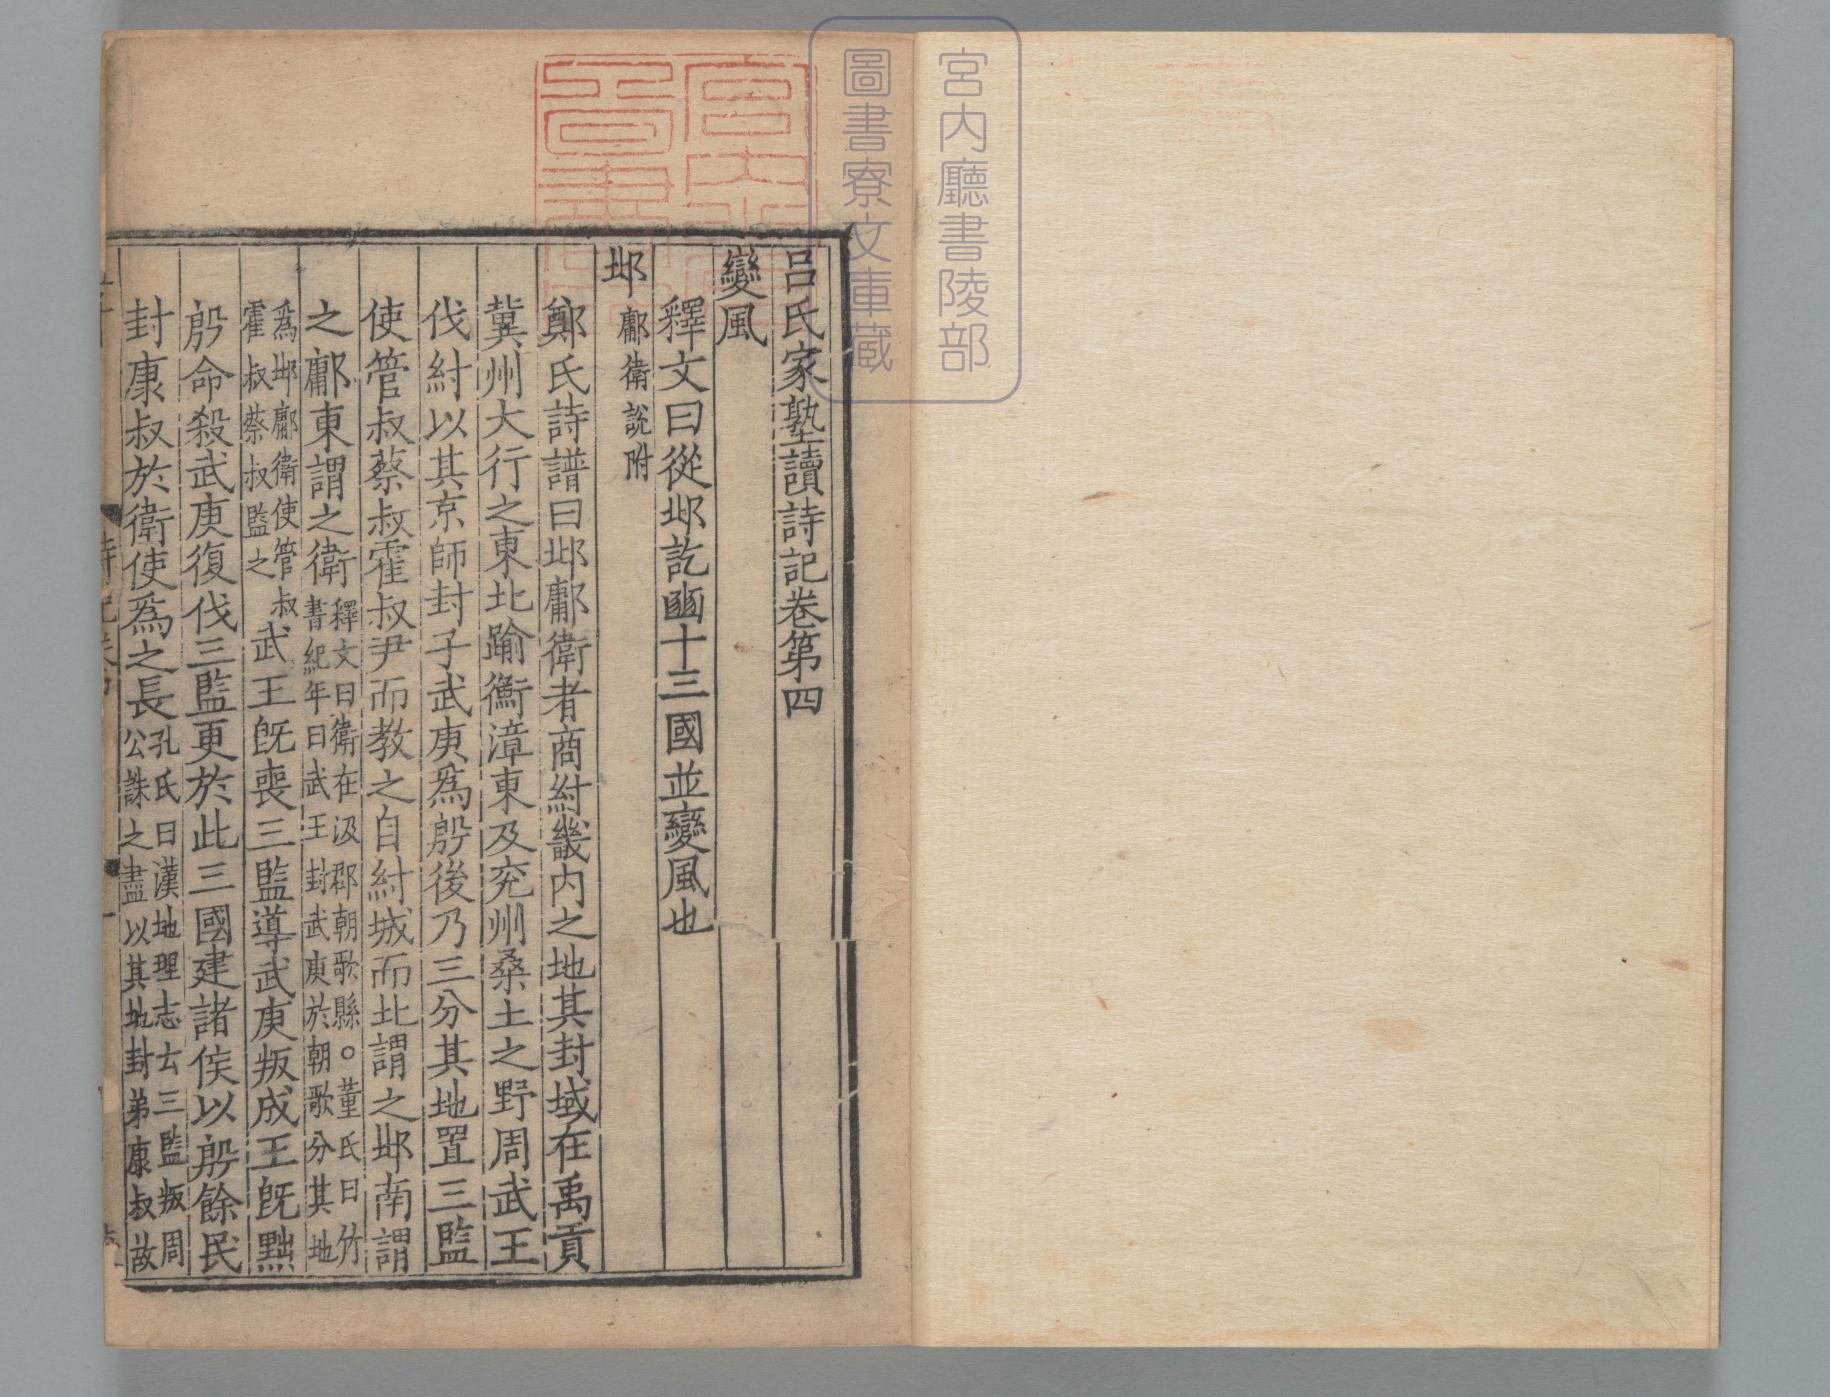 宮内廳書陵部
圖書寮文庫蔵
呂氏家塾讀詩記卷第四
變風
釋文曰從邶訖豳十三國並變風也
邶鄘衛說附
鄭氏詩譜曰邶鄘衛者商紂畿内之地其封域在禹貢
冀州大行之東北踰衡漳東及兖州桑土之野周武王
伐紂以其京師封子武庚爲殷後乃三分其地置三監
使管叔蔡叔霍叔尹而教之自紂城而北謂之邶南謂
之鄘東謂之衛釋文曰衛在汲郡朝歌縣○董氏曰竹
書紀年曰武王封武庚於朝歌分其地
爲邶鄘衛使管叔
霍叔蔡叔監之武王旣喪三監導武庚叛成王旣黜
殷命殺武庚復伐三監更於此三國建諸侯以殷餘民
封康叔於衛使爲之長孔氏曰漢地理志云三監叛周
公誅之盡以其地封弟康叔故